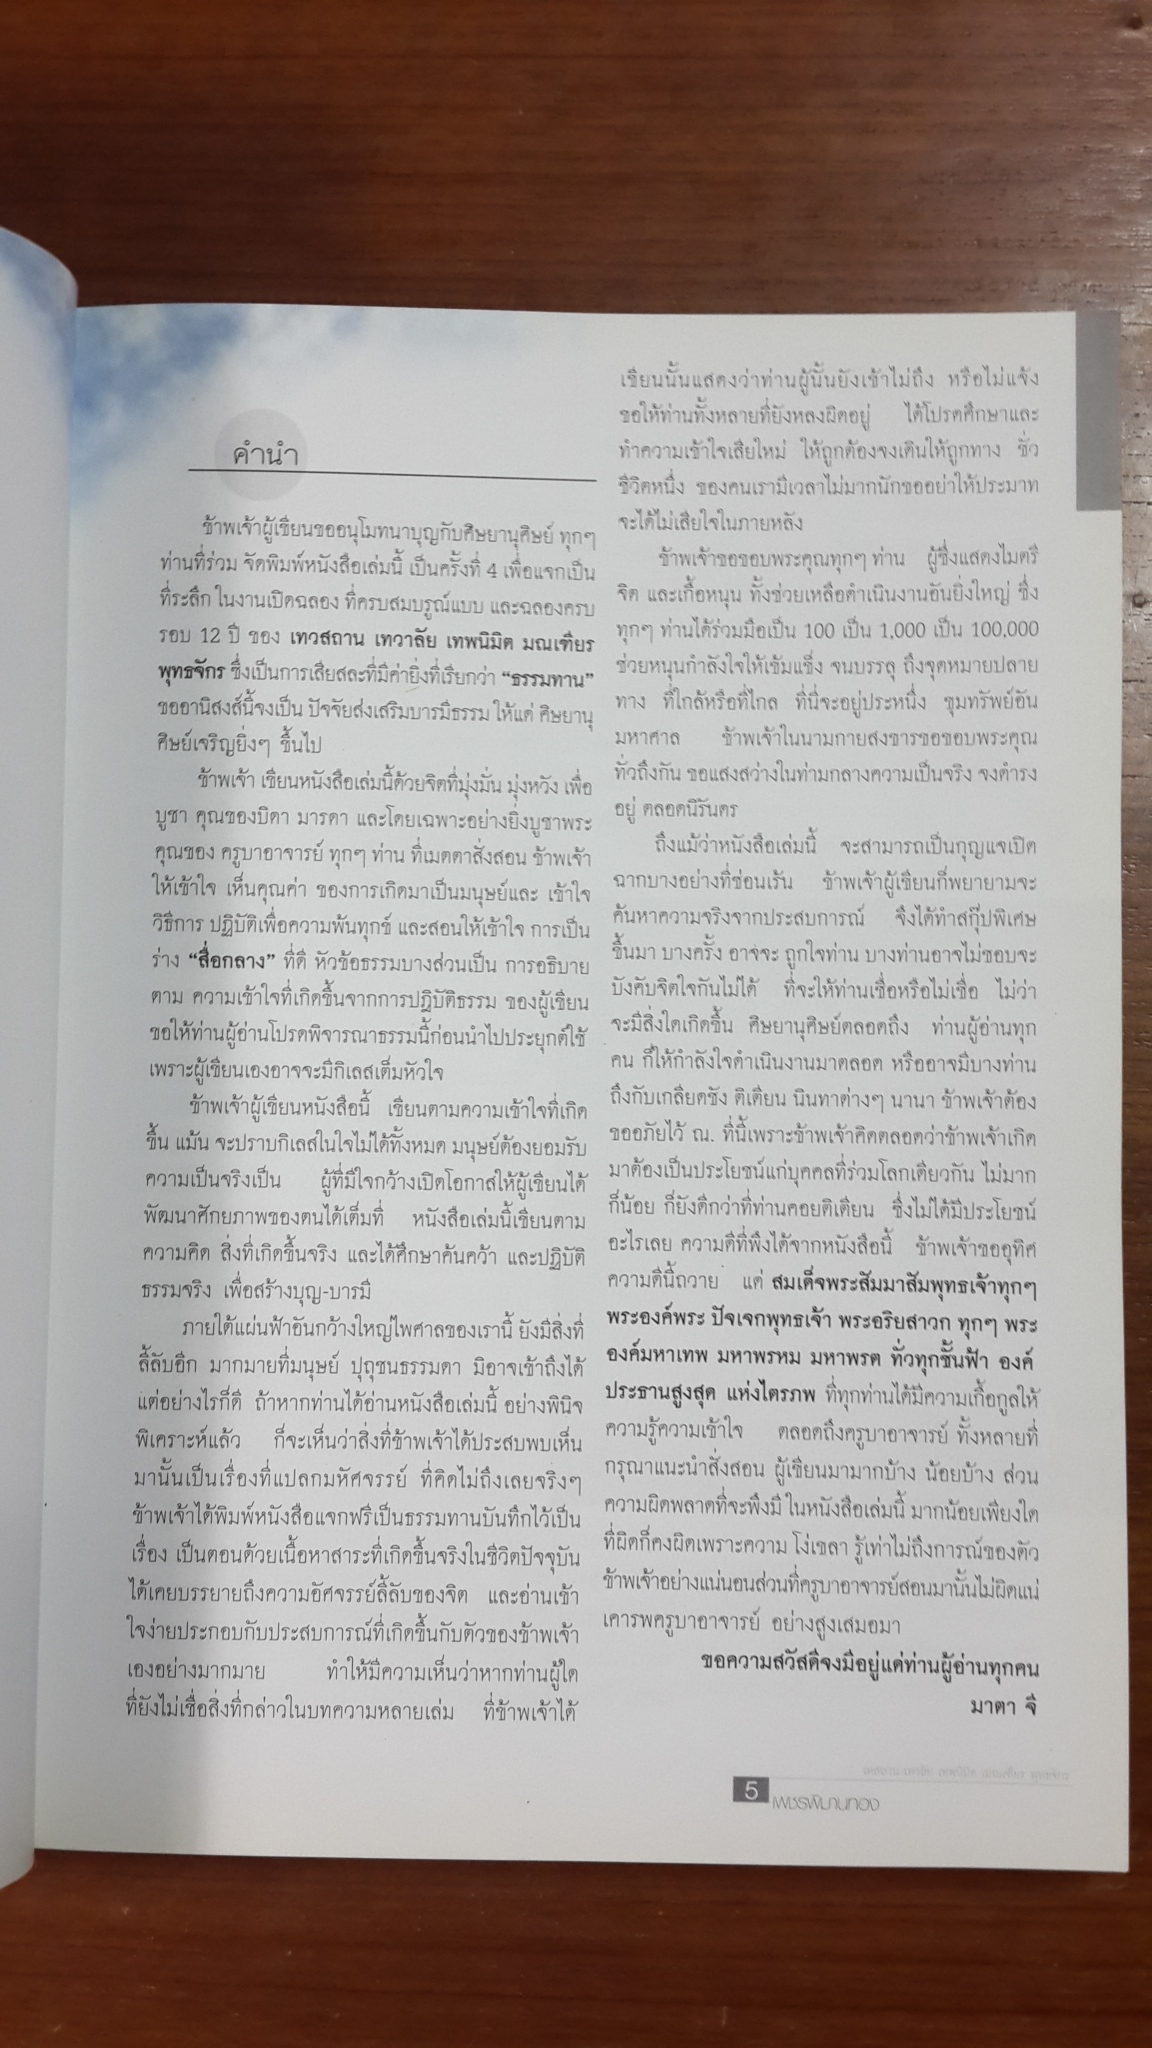 คำนำ
ข้าพเจ้าผู้เขียนขออนุโมทนาบุญกับศิษยานุศิษย์ ทุกๆ
ท่านที่ร่วม จัดพิมพ์หนังสือเล่มนี้ เป็นครั้งที่ 4 เพื่อแจกเป็น
ที่ระลึก ในงานเปิดฉลอง ที่ครบสมบรูณ์แบบ และฉลองครบ
รอบ 12 ปี ของ เทวสถาน เทวาลัย เทพนิมิต มณเฑียร
พุทธจักร ซึ่งเป็นการเสียสละที่มีค่ายิ่งที่เรียกว่า “ธรรมทาน”
ขออานิสงส์นี้จงเป็น ปัจจัยส่งเสริมบารมีธรรม ให้แด่ ศิษยานุ
ศิษย์เจริญยิ่งๆ ขึ้นไป
ข้าพเจ้า เขียนหนังสือเล่มนี้ด้วยจิตที่มุ่งมั่น มุ่งหวัง เพื่อ
บูชา คุณของบิดา มารดา และโดยเฉพาะอย่างยิ่งบูชาพระ
คุณของ ครูบาอาจารย์ ทุกๆ ท่าน ที่เมตตาสั่งสอน ข้าพเจ้า
ให้เข้าใจ เห็นคุณค่า ของการเกิดมาเป็นมนุษย์และ เข้าใจ
วิธีการ ปฏิบัติเพื่อความพ้นทุกข์ และสอนให้เข้าใจ การเป็น
ร่าง “สื่อกลาง” ที่ดี หัวข้อธรรมบางส่วนเป็น การอธิบาย
ตาม ความเข้าใจที่เกิดขึ้นจากการปฏิบัติธรรม ของผู้เขียน
ขอให้ท่านผู้อ่านโปรดพิจารณาธรรมนี้ก่อนนำไปประยุกต์ใช้
เพราะผู้เขียนเองอาจจะมีกิเลสเต็มหัวใจ
ข้าพเจ้าผู้เขียนหนังสือนี้ เขียนตามความเข้าใจที่เกิด
ขึ้น แม้น จะปราบกิเลสในใจไม่ได้ทั้งหมด มนุษย์ต้องยอมรับ
ความเป็นจริงเป็น ผู้ที่มีใจกว้างเปิดโอกาสให้ผู้เขียนได้
พัฒนาศักยภาพของตนได้เต็มที่ หนังสือเล่มนี้เขียนตาม
ความคิด สิ่งที่เกิดขึ้นจริง และได้ศึกษาค้นคว้า และปฏิบัติ
ธรรมจริง เพื่อสร้างบุญ-บารมี
ภายใต้แผ่นฟ้าอันกว้างใหญ่ไพศาลของเรานี้ ยังมีสิ่งที่
ลี้ลับอีก มากมายที่มนุษย์ ปุถุชนธรรมดา มิอาจเข้าถึงได้
แต่อย่างไรก็ดี ถ้าหากท่านได้อ่านหนังสือเล่มนี้ อย่างพินิจ
พิเคราะห์แล้ว ก็จะเห็นว่าสิ่งที่ข้าพเจ้าได้ประสบพบเห็น
มานั้นเป็นเรื่องที่แปลกมหัศจรรย์ ที่คิดไม่ถึงเลยจริงๆ
ข้าพเจ้าได้พิมพ์หนังสือแจกฟรีเป็นธรรมทานบันทึกไว้เป็น
เรื่อง เป็นตอนด้วยเนื้อหาสาระที่เกิดขึ้นจริงในชีวิตปัจจุบัน
ได้เคยบรรยายถึงความอัศจรรย์ลี้ลับของจิต และอ่านเข้า
ใจง่ายประกอบกับประสบการณ์ที่เกิดขึ้นกับตัวของข้าพเจ้า
เองอย่างมากมาย ทำให้มีความเห็นว่าหากท่านผู้ใด
ที่ยังไม่เชื่อสิ่งที่กล่าวในบทความหลายเล่ม ที่ข้าพเจ้าได้
เขียนนั้นแสดงว่าท่านผู้นั้นยังเข้าไม่ถึง หรือไม่แจ้ง
ขอให้ท่านทั้งหลายที่ยังหลงผิดอยู่ ได้โปรดศึกษาและ
ทำความเข้าใจเสียใหม่ ให้ถูกต้องจงเดินให้ถูกทาง ชั่ว
ชีวิตหนึ่ง ของคนเรามีเวลาไม่มากนักขออย่าให้ประมาท
จะได้ไม่เสียใจในภายหลัง
ข้าพเจ้าขอขอบพระคุณทุกๆ ท่าน ผู้ซึ่งแสดงไมตรี
จิต และเกื้อหนุน ทั้งช่วยเหลือดำเนินงานอันยิ่งใหญ่ ซึ่ง
ทุกๆ ท่านได้ร่วมมือเป็น 100 เป็น 1,000 เป็น 100,000
ช่วยหนุนกำลังใจให้เข้มแข็ง จนบรรลุ ถึงจุดหมายปลาย
ทาง ที่ใกล้หรือที่ไกล ที่นี่จะอยู่ประหนึ่ง ขุมทรัพย์อัน
มหาศาล ข้าพเจ้าในนามกายสังขารขอขอบพระคุณ
ทั่วถึงกัน ขอแสงสว่างในท่ามกลางความเป็นจริง จงดำรง
อยู่ ตลอดนิรันดร
ถึงแม้ว่าหนังสือเล่มนี้ จะสามารถเป็นกุญแจเปิด
ฉากบางอย่างที่ซ่อนเร้น ข้าพเจ้าผู้เขียนก็พยายามจะ
ค้นหาความจริงจากประสบการณ์ จึงได้ทำสกู๊ปพิเศษ
ขึ้นมา บางครั้ง อาจจะ ถูกใจท่าน บางท่านอาจไม่ชอบจะ
บังคับจิตใจกันไม่ได้ ที่จะให้ท่านเชื่อหรือไม่เชื่อ ไม่ว่า
จะมีสิ่งใดเกิดขึ้น ศิษยานุศิษย์ตลอดถึง ท่านผู้อ่านทุก
คน ก็ให้กำลังใจดำเนินงานมาตลอด หรืออาจมีบางท่าน
ถึงกับเกลียดชัง ติเตียน นินทาต่างๆ นานา ข้าพเจ้าต้อง
ขออภัยไว้ ณ. ที่นี้เพราะข้าพเจ้าคิดตลอดว่าข้าพเจ้าเกิด
มาต้องเป็นประโยชน์แก่บุคคลที่ร่วมโลกเดียวกัน ไม่มาก
ก็น้อย ก็ยังดีกว่าที่ท่านคอยติเตียน ซึ่งไม่ได้มีประโยชน์
อะไรเลย ความดีที่พึงได้จากหนังสือนี้ ข้าพเจ้าขออุทิศ
ความดีนี้ถวาย แด่ สมเด็จพระสัมมาสัมพุทธเจ้าทุกๆ
พระองค์พระ ปัจเจกพุทธเจ้า พระอริยสาวก ทุกๆ พระ
องค์มหาเทพ มหาพรหม มหาพรต ทั่วทุกชั้นฟ้า องค์
ประธานสูงสุด แห่งไตรภพ ที่ทุกท่านได้มีความเกื้อกูลให้
ความรู้ความเข้าใจ ตลอดถึงครูบาอาจารย์ ทั้งหลายที่
กรุณาแนะนำสั่งสอน ผู้เขียนมามากบ้าง น้อยบ้าง ส่วน
ความผิดพลาดที่จะพึงมี ในหนังสือเล่มนี้ มากน้อยเพียงใด
ที่ผิดก็คงผิดเพราะความ โง่เขลา รู้เท่าไม่ถึงการณ์ของตัว
ข้าพเจ้าอย่างแน่นอนส่วนที่ครูบาอาจารย์สอนมานั้นไม่ผิดแน่
เคารพครูบาอาจารย์ อย่างสูงเสมอมา
ขอความสวัสดีจงมีอยู่แด่ท่านผู้อ่านทุกคน
มาตา จี
5 เพชรพิมานทอง